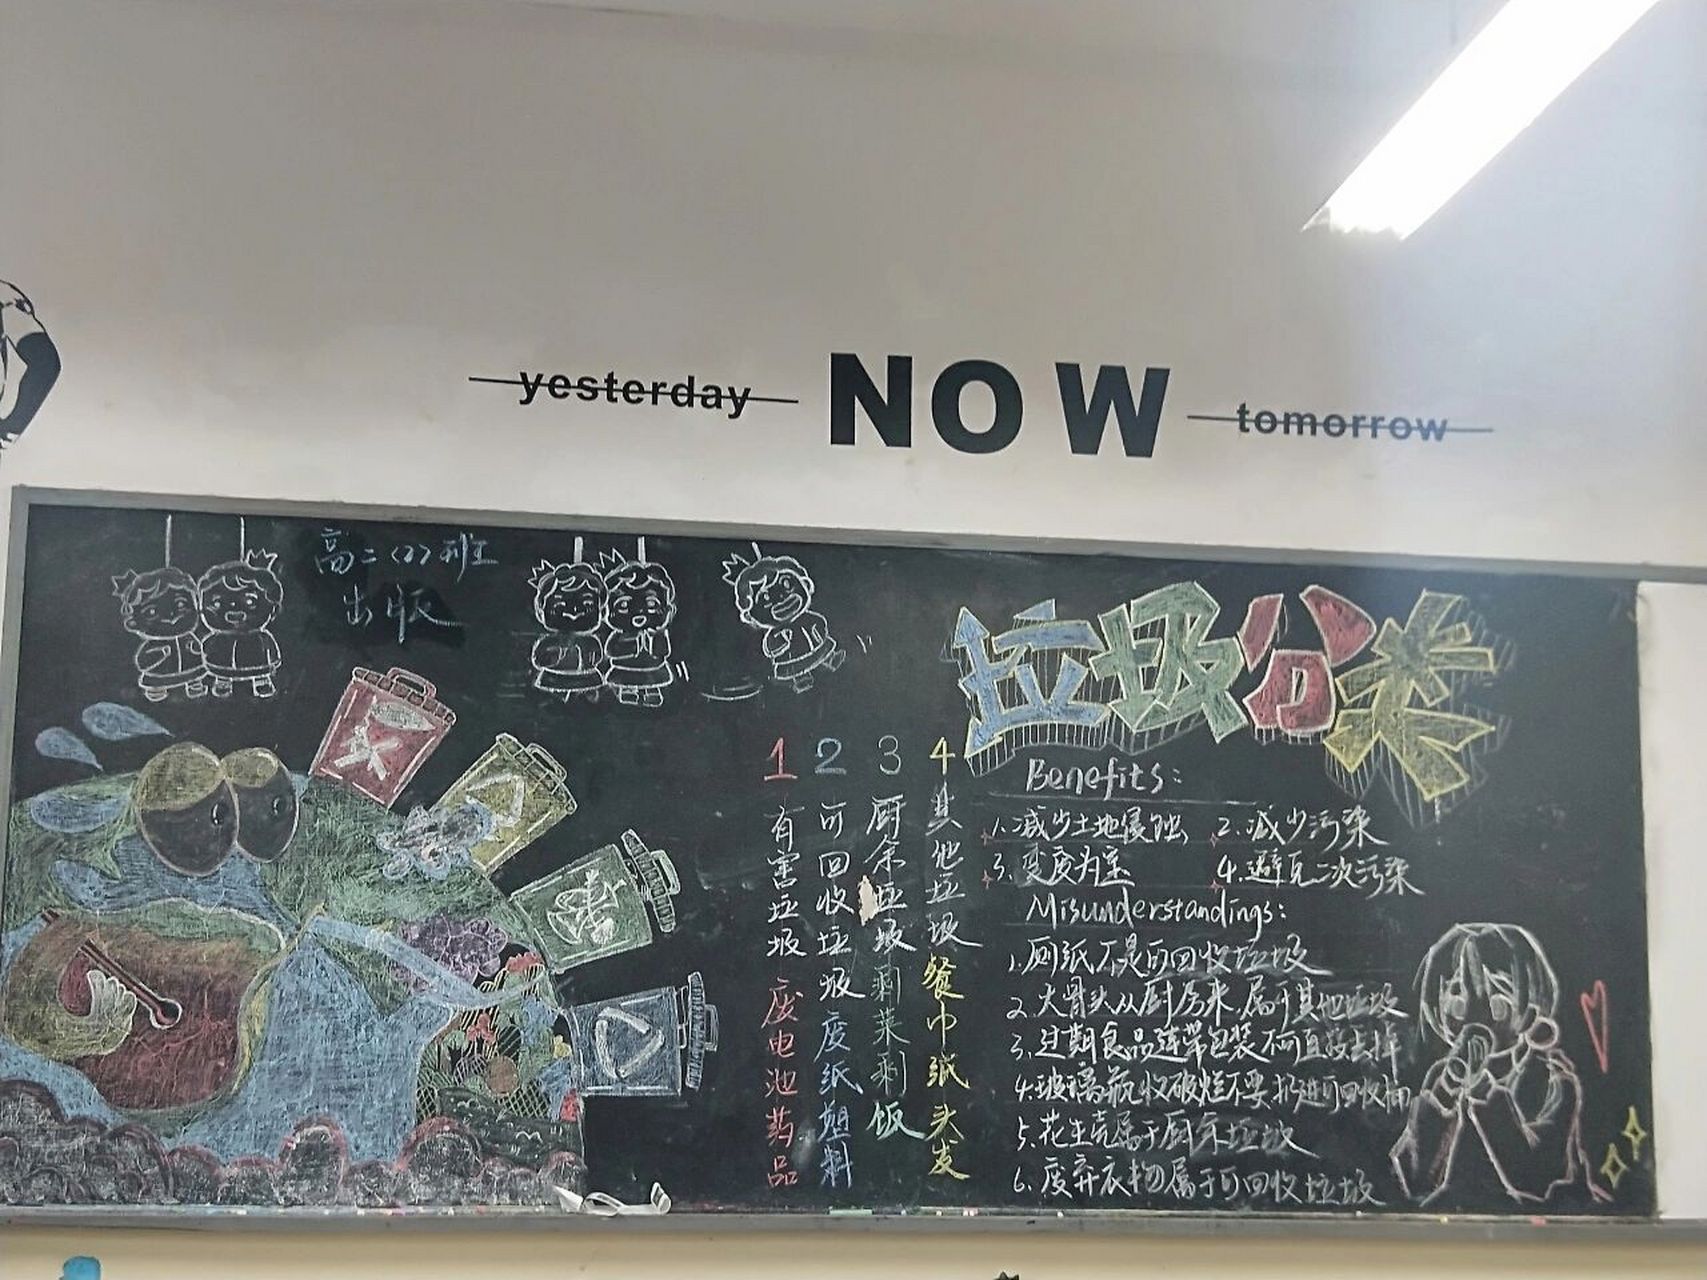 yesterday NOW tomorrow
高二(7)班
出版
垃圾分类
1 有害垃圾 废电池药品
2 可回收垃圾 废纸塑料
3 厨余垃圾 剩菜剩饭
4 其他垃圾 餐巾纸头发
Benefits:
1.减少土地侵蚀 2.减少污染
3.变废为宝 4.避免二次污染
Misunderstandings:
1.厕纸不是可回收垃圾
2.大骨头从厨房来,属于其他垃圾
3.过期食品连带包装不可直接丢掉
4.玻璃瓶收破烂不要扔进可回收桶
5.花生壳属于厨余垃圾
6.废弃衣物属于可回收垃圾